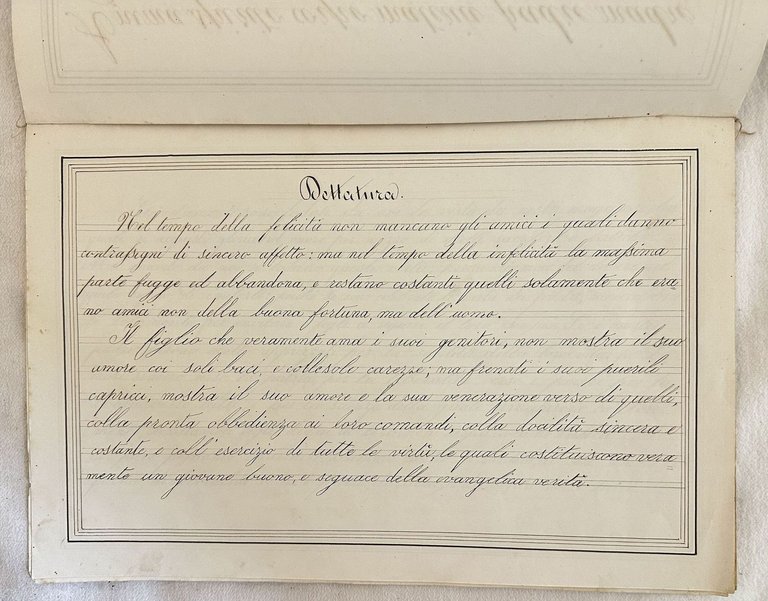 Anima spirito corpo materia padre madre
Dettatura.
Nel tempo della felicità non mancano gli amici i quali danno
contrasegni di sincero affetto: ma nel tempo della infelicità la massima
parte fugge ed abbandona, e restano costanti quelli solamente che era=
no amici non della buona fortuna, ma dell'uomo.
Il figlio che veramente ama i suoi genitori, non mostra il suo
amore coi soli baci, e colle sole carezze; ma frenati i suoi puerili
capricci, mostra il suo amore e la sua venerazione verso di quelli,
colla pronta obbedienza ai loro comandi, colla docilità sincera e
costante, e coll'esercizio di tutte le virtù, le quali costituiscono vera=
mente un giovane buono, e seguace della evangelica verità.